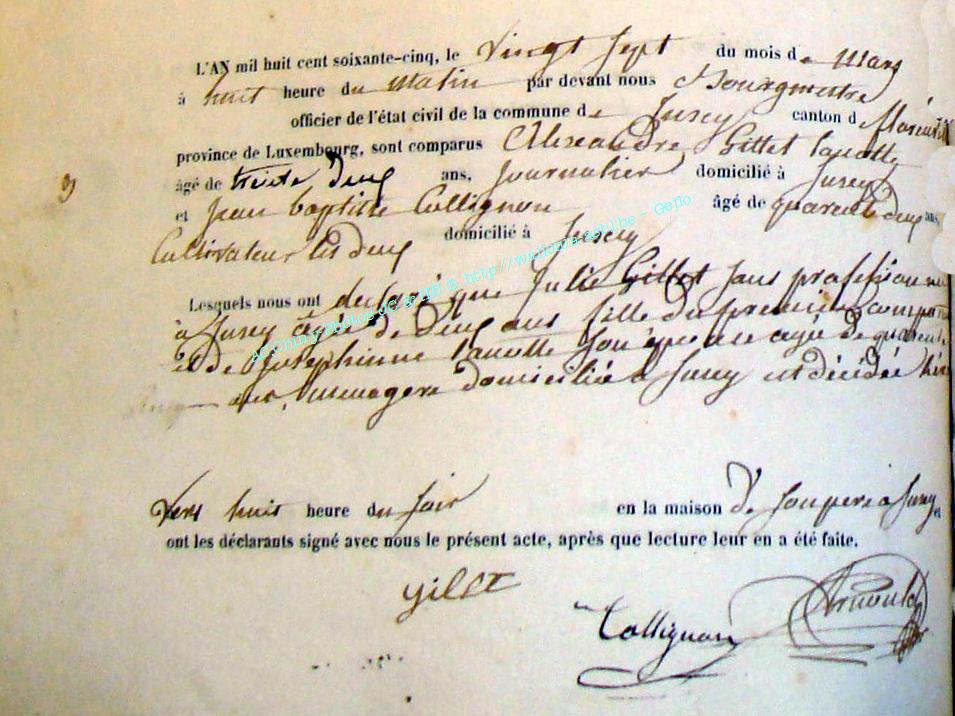 L'AN mil huit cent soixante-cinq, le vingt sept du mois de mars
à huit heure du matin par devant nous Bourgmestre
officier de l'état civil de la commune de Jusey canton de
province de Luxembourg, sont comparus Alexandre Gillet Lanotte
âgé de trente deux ans, Journalier domicilié à Jusey
et Jean baptiste Collignon âgé de quarente deux ans,
Cultivateur les deux domicilié à Jusey
Lesquels nous ont declaré que Julie Gillet sans profession
à Jusey agée de deux ans fille du premier
et de Josephinne Lanotte son épouse agée de quarente
ans, menagere domiciliée à Jusey est décédée hier
Vers huit heure du soir en la maison de son pere a Jusey et
ont les déclarants signé avec nous le présent acte, après que lecture leur en a été faite.
gilet
Collignon Arnould